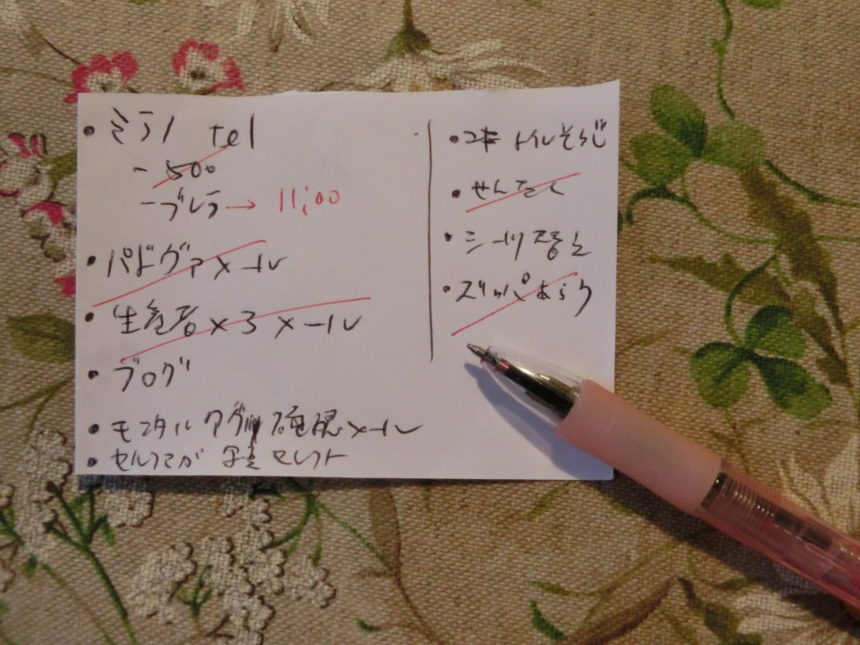 ・ミラノ tel
－500
－ブレラ→ 11:00
・パドヴァメール
・生産者×3 メール
・ブログ
・モンタル 確認メール
・セルフマガ 写真セレクト
・トイレそうじ
・せんたく
・シーツ替え
・ズッパあらう